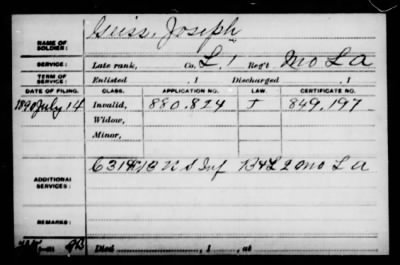 Geiss, Joseph
NAME OF SOLDIER:
SERVICE: Late rank, Co. L, 1 Reg't Mo L A
TERM OF SERVICE: Enlisted , 1 Discharged , 1
DATE OF FILING. CLASS. APPLICATION NO. LAW. CERTIFICATE NO.
1890 July 14 Invalid, 880.824 J 849,197
Widow,
Minor,
ADDITIONAL SERVICES: U S Inf L 2 Mo L A
REMARKS:
Died , 1 , at